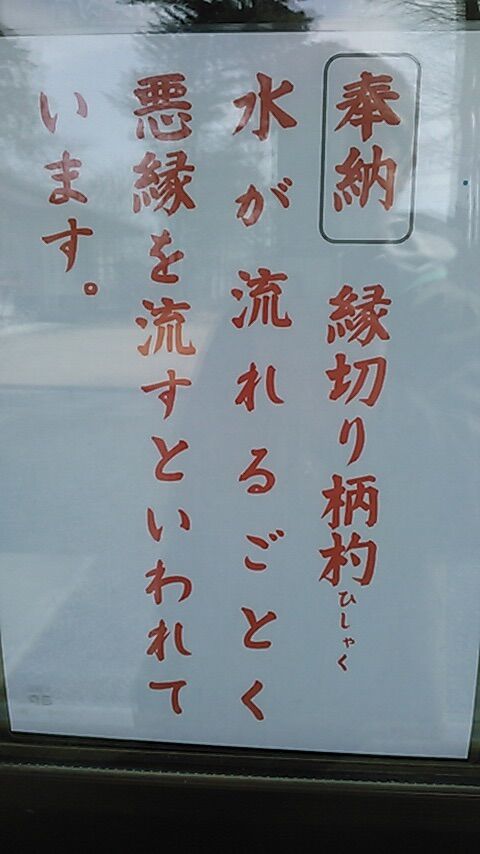 奉納 縁切り柄杓
ひしゃく
水が流れるごとく
悪縁を流すといわれて
います。